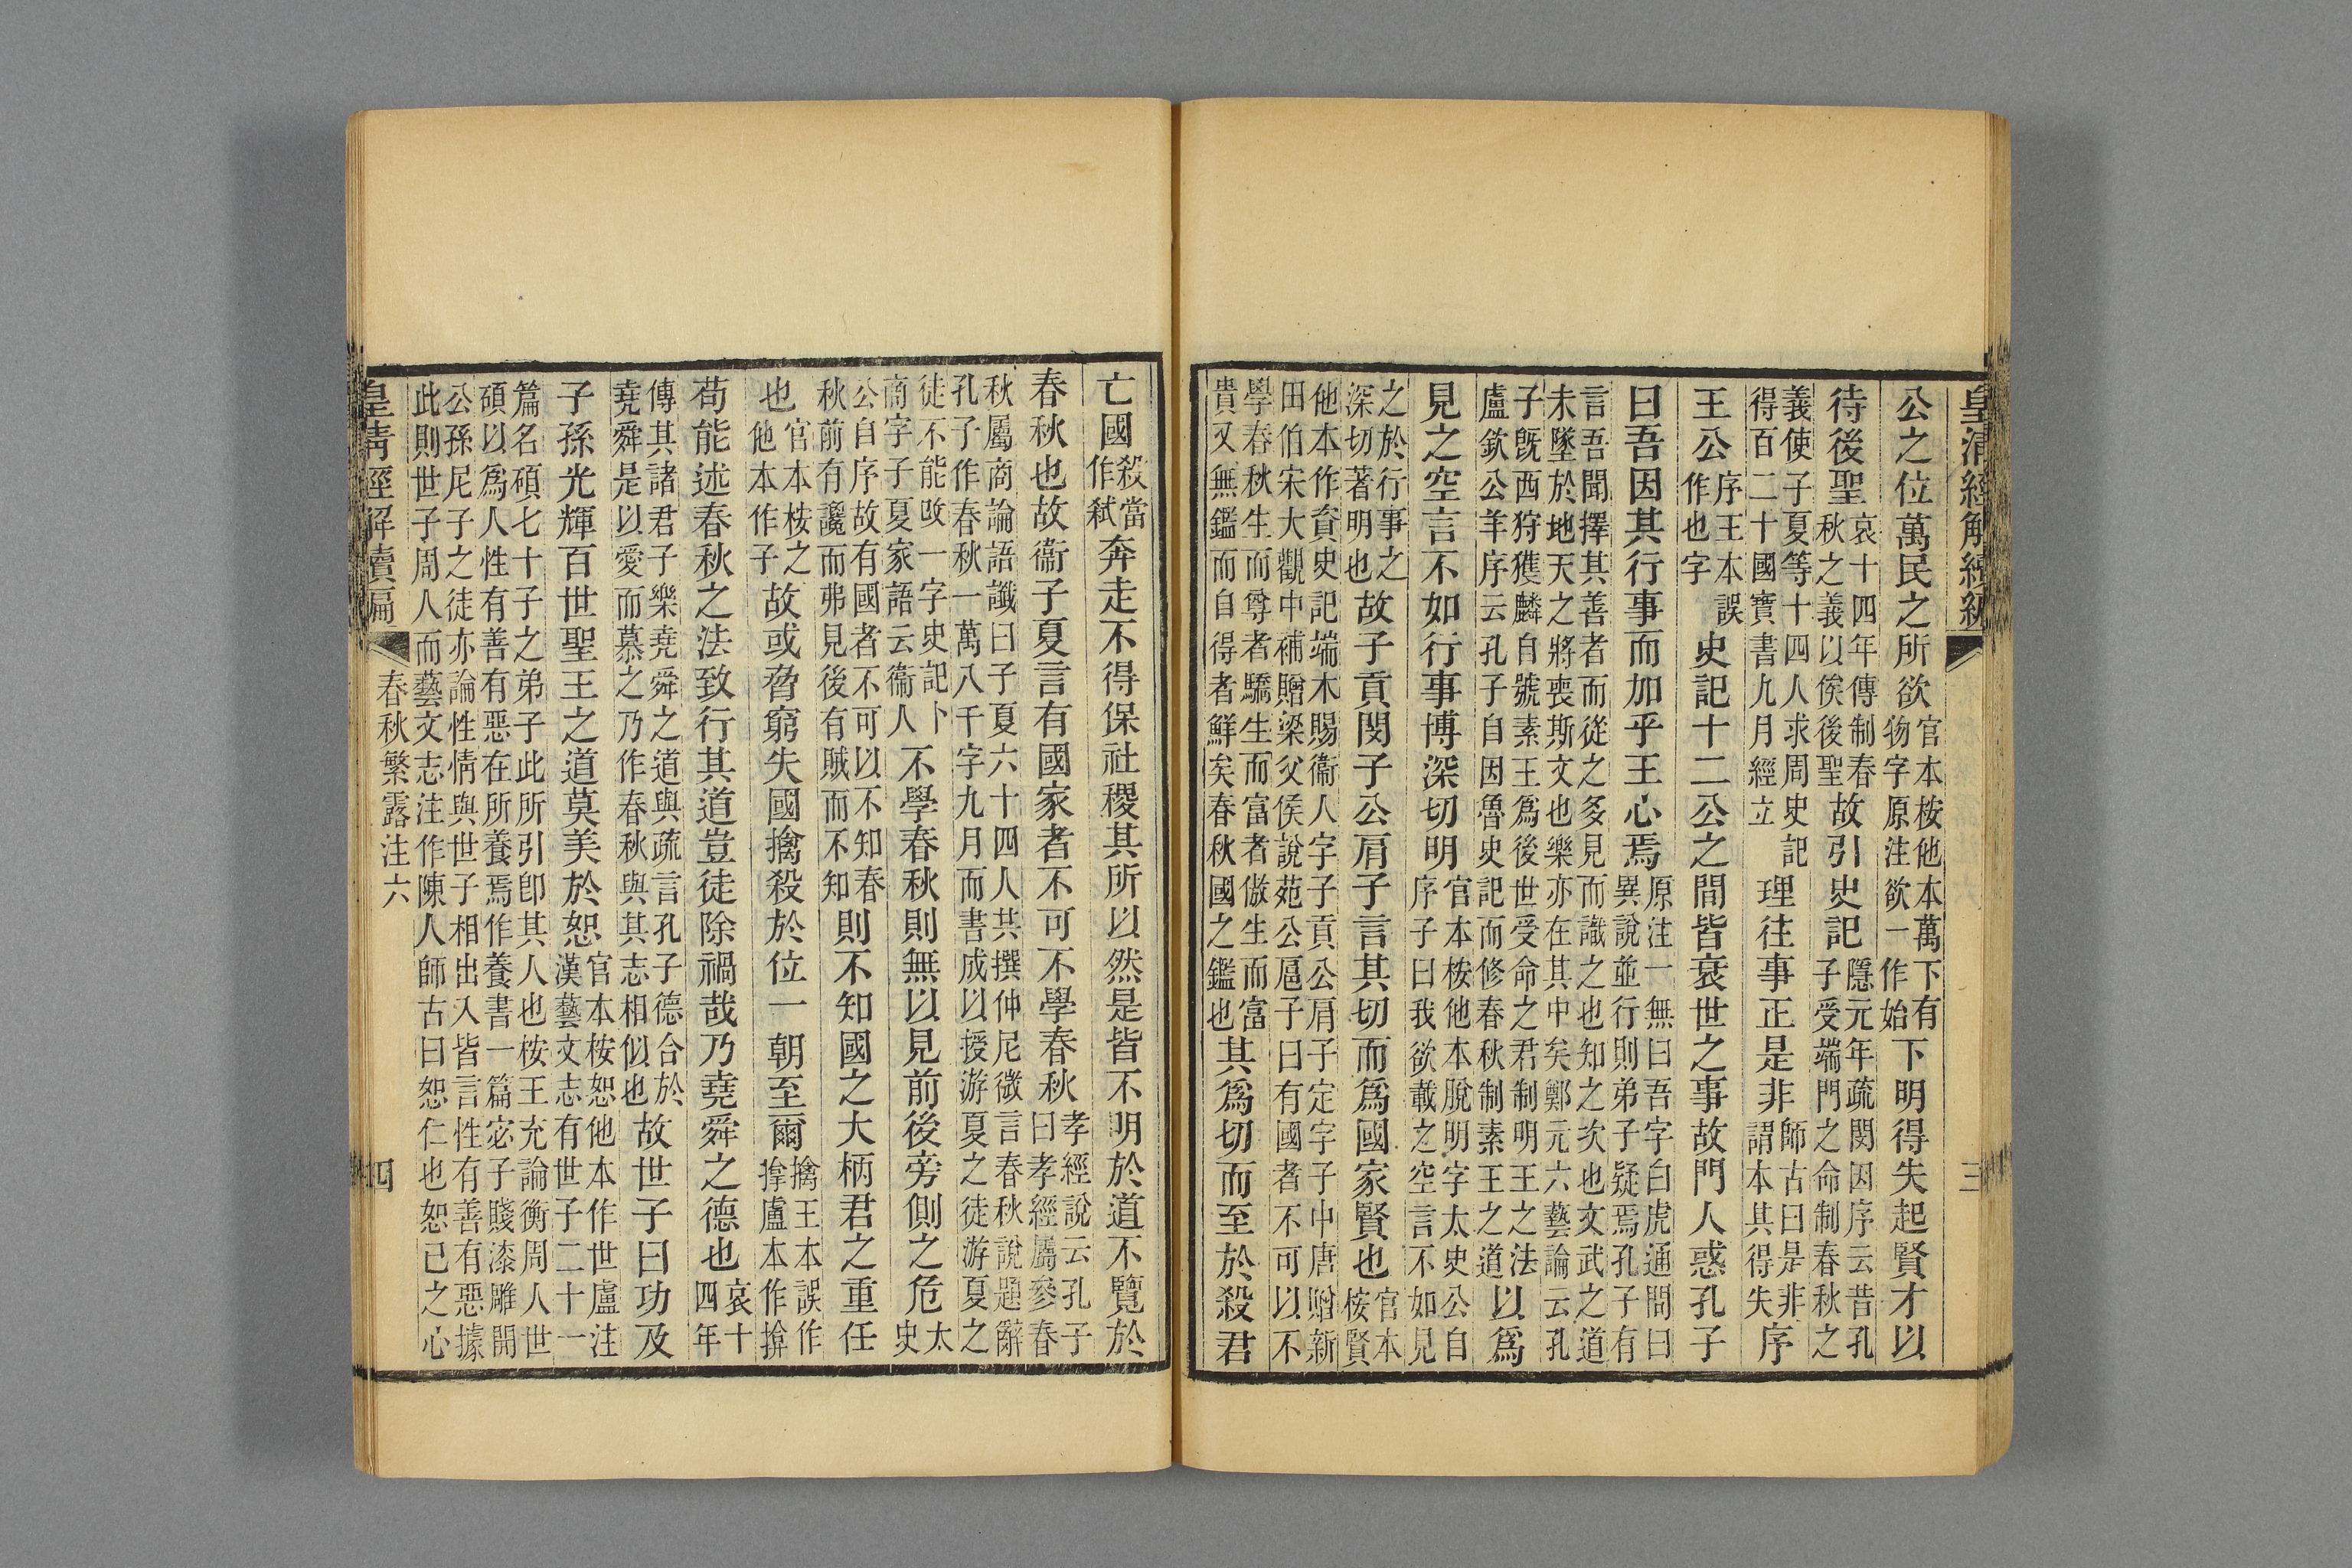 皇清經解續編 三
公之位萬民之所欲官本桉他本萬下有物字原注欲一作始下明得失起賢才以
待後聖哀十四年傳制春秋之義以俟後聖故引史記隱元年疏閔因序云昔孔子受端門之命制春秋之
義使子夏等十四人求周史記得百二十國寶書九月經立理往事正是非師古曰是非謂本其得失序
王公序王本誤作也字史記十二公之間皆衰世之事故門人惑孔子
曰吾因其行事而加乎王心焉原注一無曰吾字白虎通問曰異說並行則弟子疑焉孔子有
言吾聞擇其善者而從之多見而識之也知之次也文武之道未墜於地天之將喪斯文也樂亦在其中矣鄭元六藝論云孔
子旣西狩獲麟自號素王爲後世受命之君制明王之法盧欽公羊序云孔子自因魯史記而修春秋制素王之道以爲
見之空言不如行事博深切明官本桉他本脫明字太史公自序子曰我欲載之空言不如見
之於行事之深切著明也故子貢閔子公肩子言其切而爲國家賢也官本桉賢
他本作資史記端木賜衞人字子貢公肩子定字子中唐贈新田伯宋大觀中補贈梁父侯說苑公扈子曰有國者不可以不
學春秋生而尊者驕生而富者傲生而富貴又無鑑而自得者鮮矣春秋國之鑑也其爲切而至於殺君
亡國殺當作弒奔走不得保社稷其所以然是皆不明於道不覽於
春秋也故衞子夏言有國家者不可不學春秋孝經說云孔子曰孝經屬參春
秋屬商論語讖曰子夏六十四人共撰仲尼微言春秋說題辭孔子作春秋一萬八千字九月而書成以授游夏之徒游夏之
徒不能改一字史記卜商字子夏家語云衞人不學春秋則無以見前後旁側之危太史
公自序故有國者不可以不知春秋前有讒而弗見後有賊而不知則不知國之大柄君之重任
也官本桉之他本作子故或脅窮失國擒殺於位一朝至爾擒王本誤作撐盧本作揜
苟能述春秋之法致行其道豈徒除禍哉乃堯舜之德也哀十四年
傳其諸君子樂堯舜之道與疏言孔子德合於堯舜是以愛而慕之乃作春秋與其志相似也故世子曰功及
子孫光輝百世聖王之道莫美於恕官本桉恕他本作世盧注漢藝文志有世子二十一
篇名碩七十子之弟子此所引卽其人也桉王充論衡周人世碩以爲人性有善有惡在所養焉作養書一篇宓子賤漆雕開
公孫尼子之徒亦論性情與世子相出入皆言性有善有惡據此則世子周人而藝文志注作陳人師古曰恕仁也恕己之心
皇清經解續編 春秋繁露注六 四